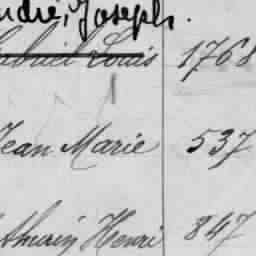 André, Joseph.
Gabriel Louis 1768
Jean Marie 537
Henri 847